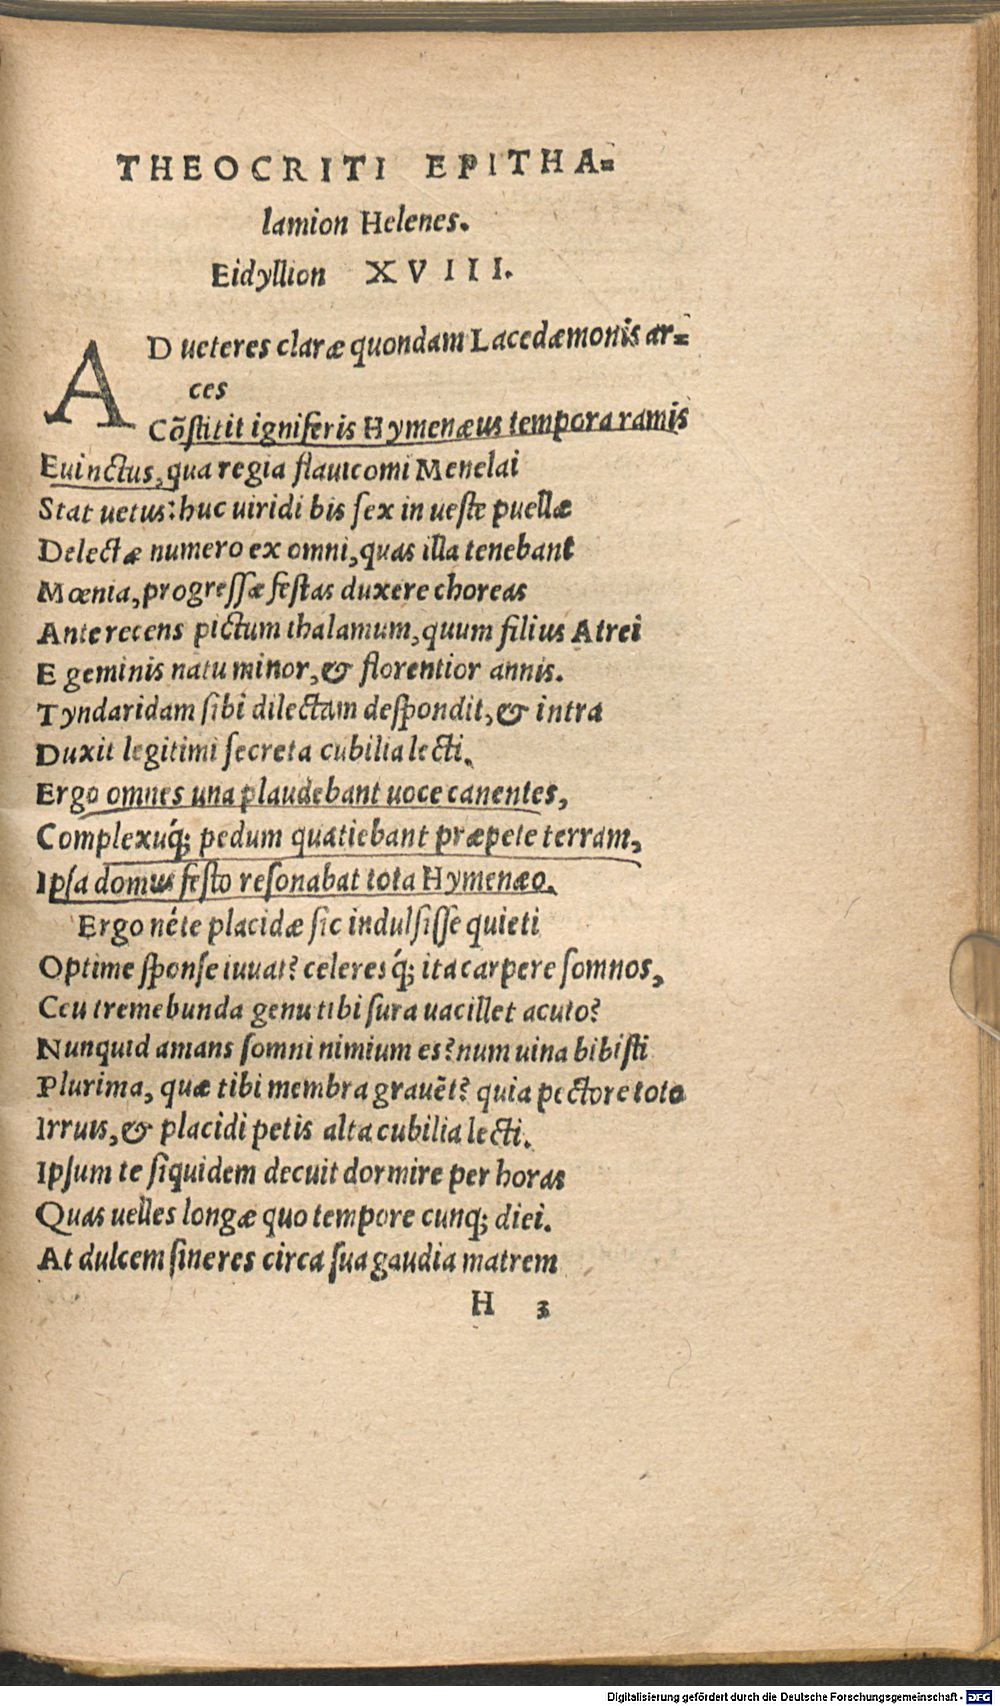 THEOCRITI EPITHA=
lamion Helenes.
Eidyllion XVIII.
AD ueteres claræ quondam Lacedæmonis ar=
ces
Cõstitit igniferis Hymenæus tempora ramis
Euinctus, qua regia flauicomi Menelai
Stat uetus: huc uiridi bis sex in ueste puellæ
Delectæ numero ex omni, quas illa tenebant
Mœnia, progressæ festas duxere choreas
Ante recens pictum thalamum, quum filius Atrei
E geminis natu minor, & florentior annis.
Tyndaridam sibi dilectam despondit, & intra
Duxit legitimi secreta cubilia lecti.
Ergo omnes una plaudebant uoce canentes,
Complexuq́; pedum quatiebant præpete terram,
Ipsa domus festo resonabat tota Hymenæo.
Ergo né te placidæ sic indulsisse quieti
Optime sponse iuuat? celeresq́; ita carpere somnos,
Ceu tremebunda genu tibi sura uacillet acuto?
Nunquid amans somni nimium es? num uina bibisti
Plurima, quæ tibi membra grauẽt? quia pectore toto
Irruis, & placidi petis alta cubilia lecti.
Ipsum te siquidem decuit dormire per horas
Quas uelles longæ quo tempore cunq; diei.
At dulcem sineres circa sua gaudia matrem
H 3
Digitalisierung gefördert durch die Deutsche Forschungsgemeinschaft - DFG